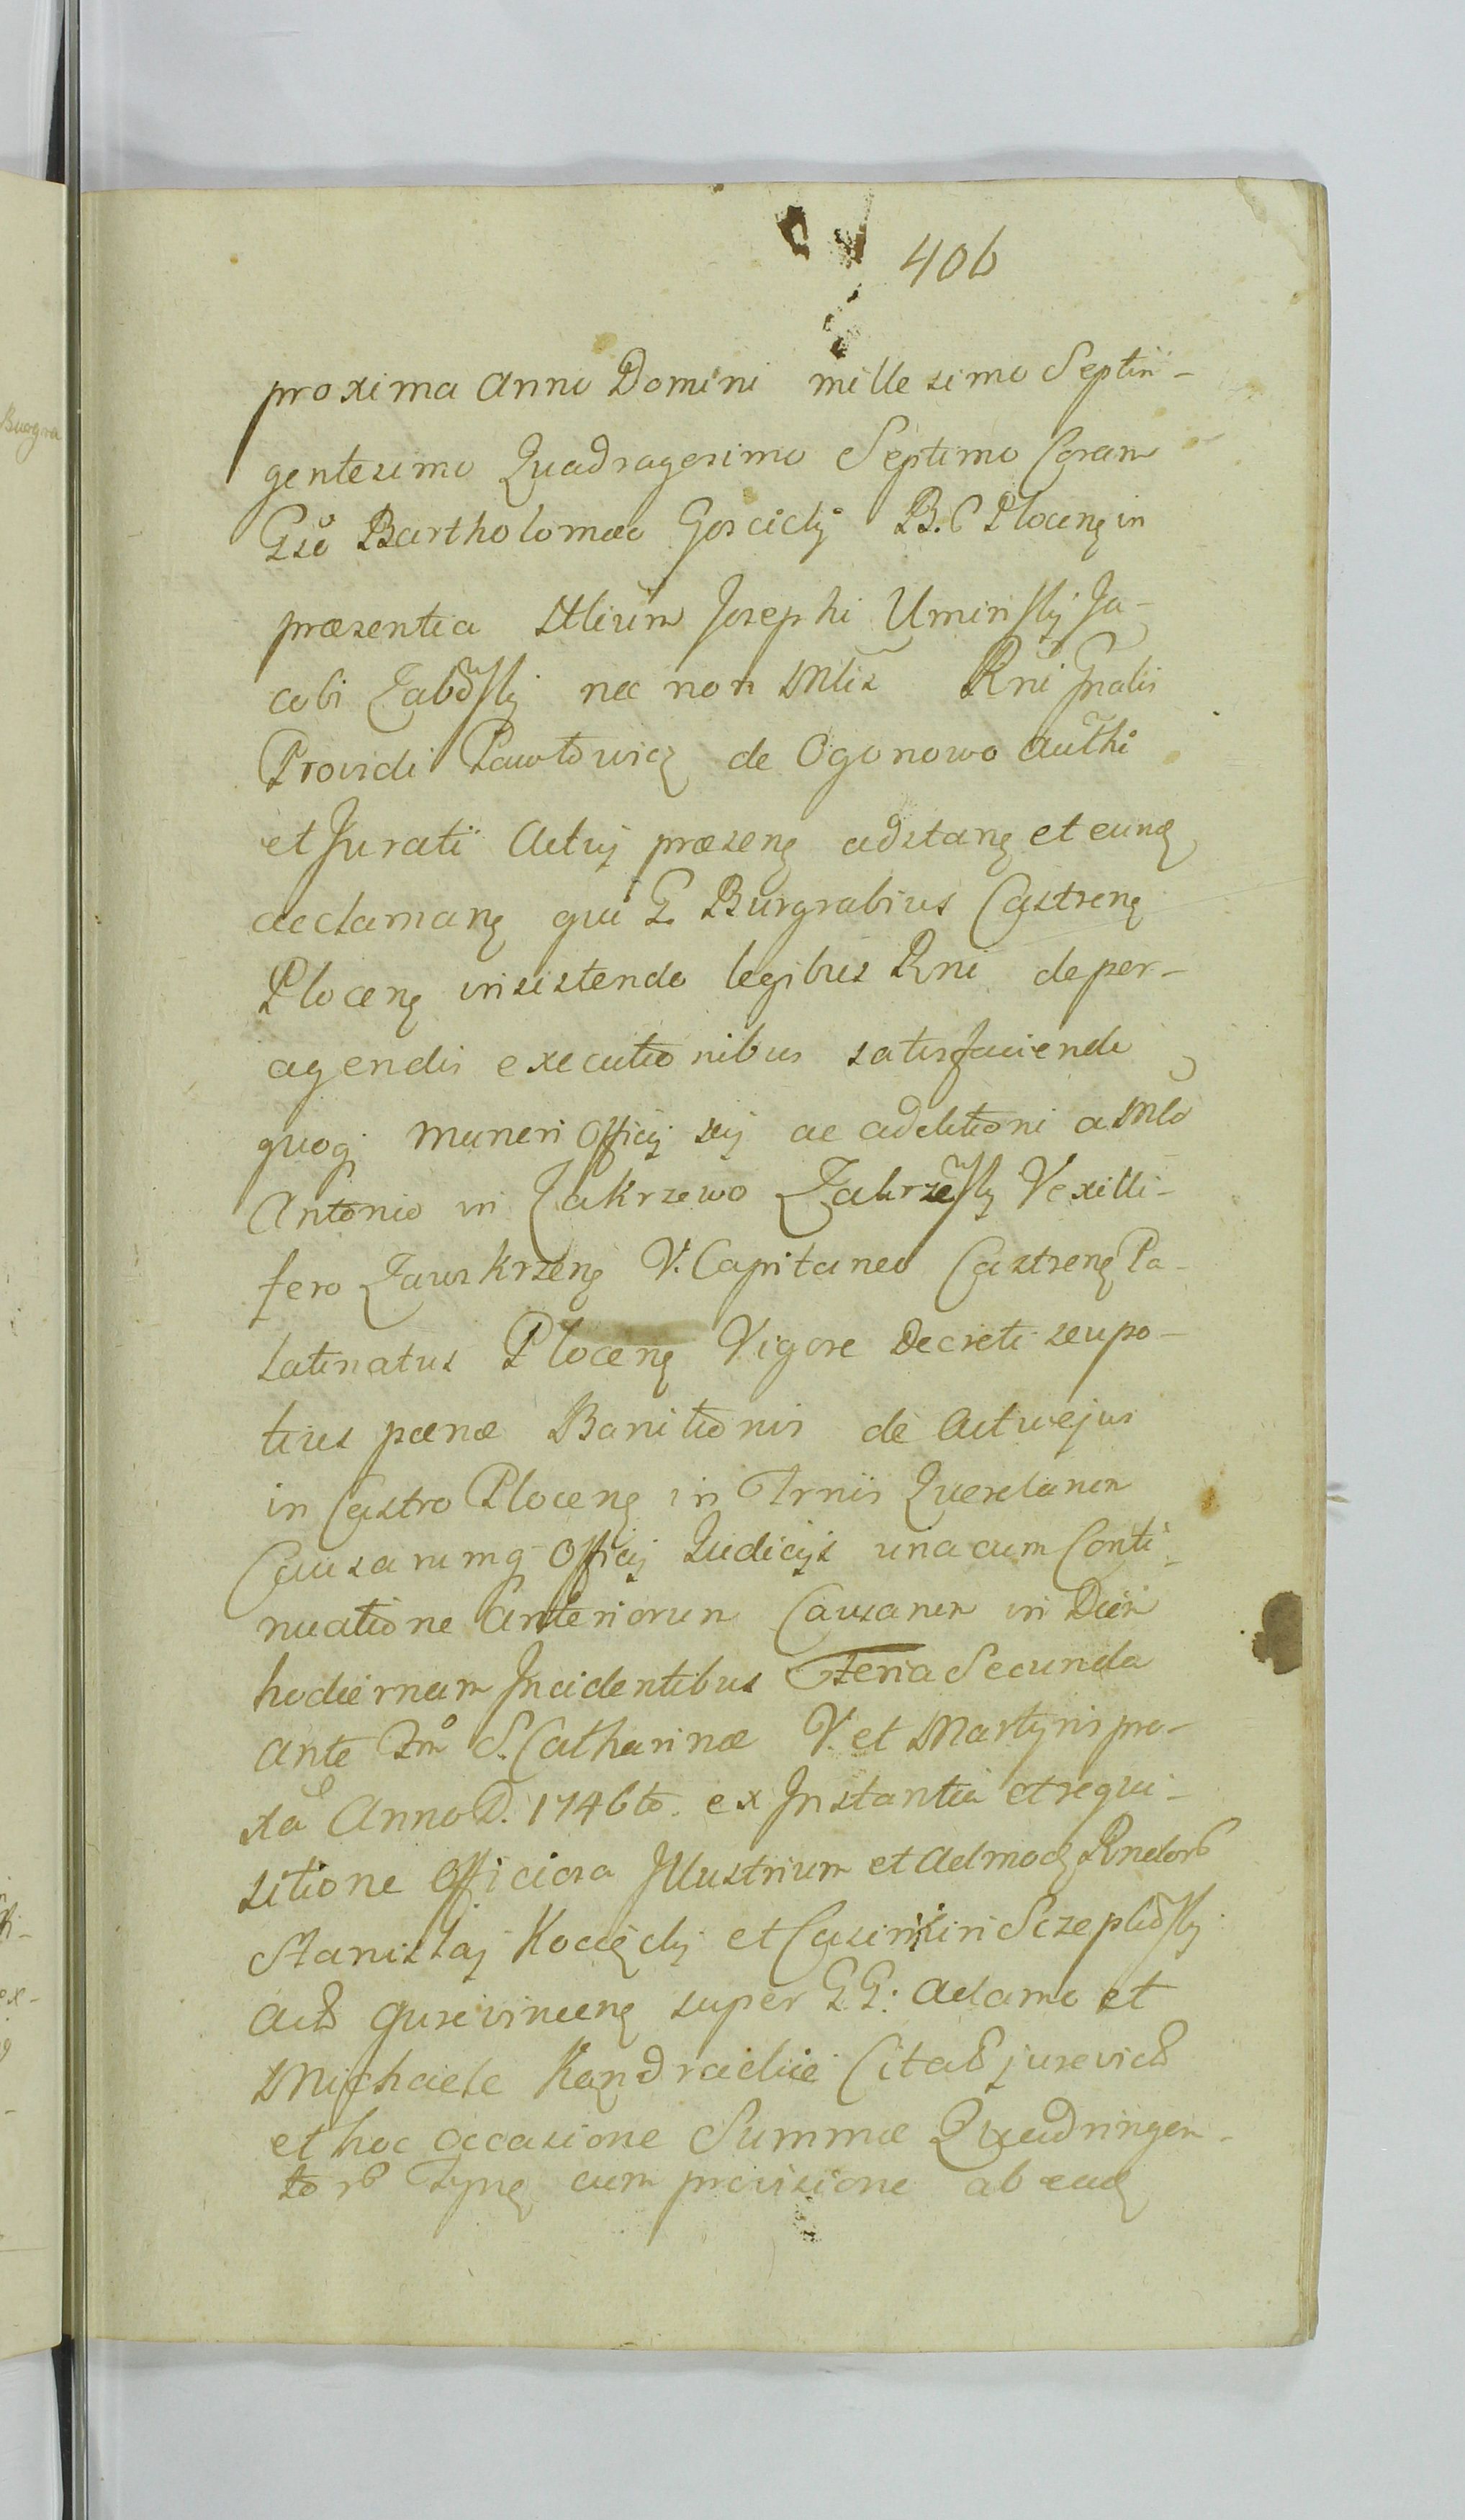 406
proxima Anno Domini millesimo Septin-
gentesimo Quadragesimo Septimo Coram
Gso Bartholomæo Goscicky B. C Plocen in
præsentia Nlium Josephi Uminsky Ja-
cobi Zaborsky nec non Mlis Rni Gnalis
Providi Pawłowicz de Ogonowo Authi
et Jurati Actuj præsen adstan et eund
acclaman qui G. Burgrabius Castren
Plocen insistendo legibus Rni de per-
agendis executionibus satisfaciendo
quoq muneri Officij sui ac additioni a Mlo
Antonio in Zakrzewo Zakrzesky Vexilli-
fero Zawskrzen V. Capitaneo Castren Pa-
latinatus Plocen Vigore Decreti seu po-
tius pœnæ Banitionis de Actu ejus
in Castro Plocen in Trnis Querelarum
Causarumq Officij Judicijs una cum Conti-
nuatione Anteriorum Causarum in Diem
hodiernam Incidentibus Feria Secunda
ante Fm S. Catharinæ V. et Martyris pro-
xa Anno D. 1746to. ex Instantia et requi-
sitione Officiosa Illustrium et Admod Rndorum
Stanislaj Kociecky et Casimiri Sczepkosky
Act jurevincen super GG. Adamo et
Michaele Kendrackie Citat jurevict
et hoc occasione Summæ Quadringen-
torum Typ cum provisione ab ead
Burgra